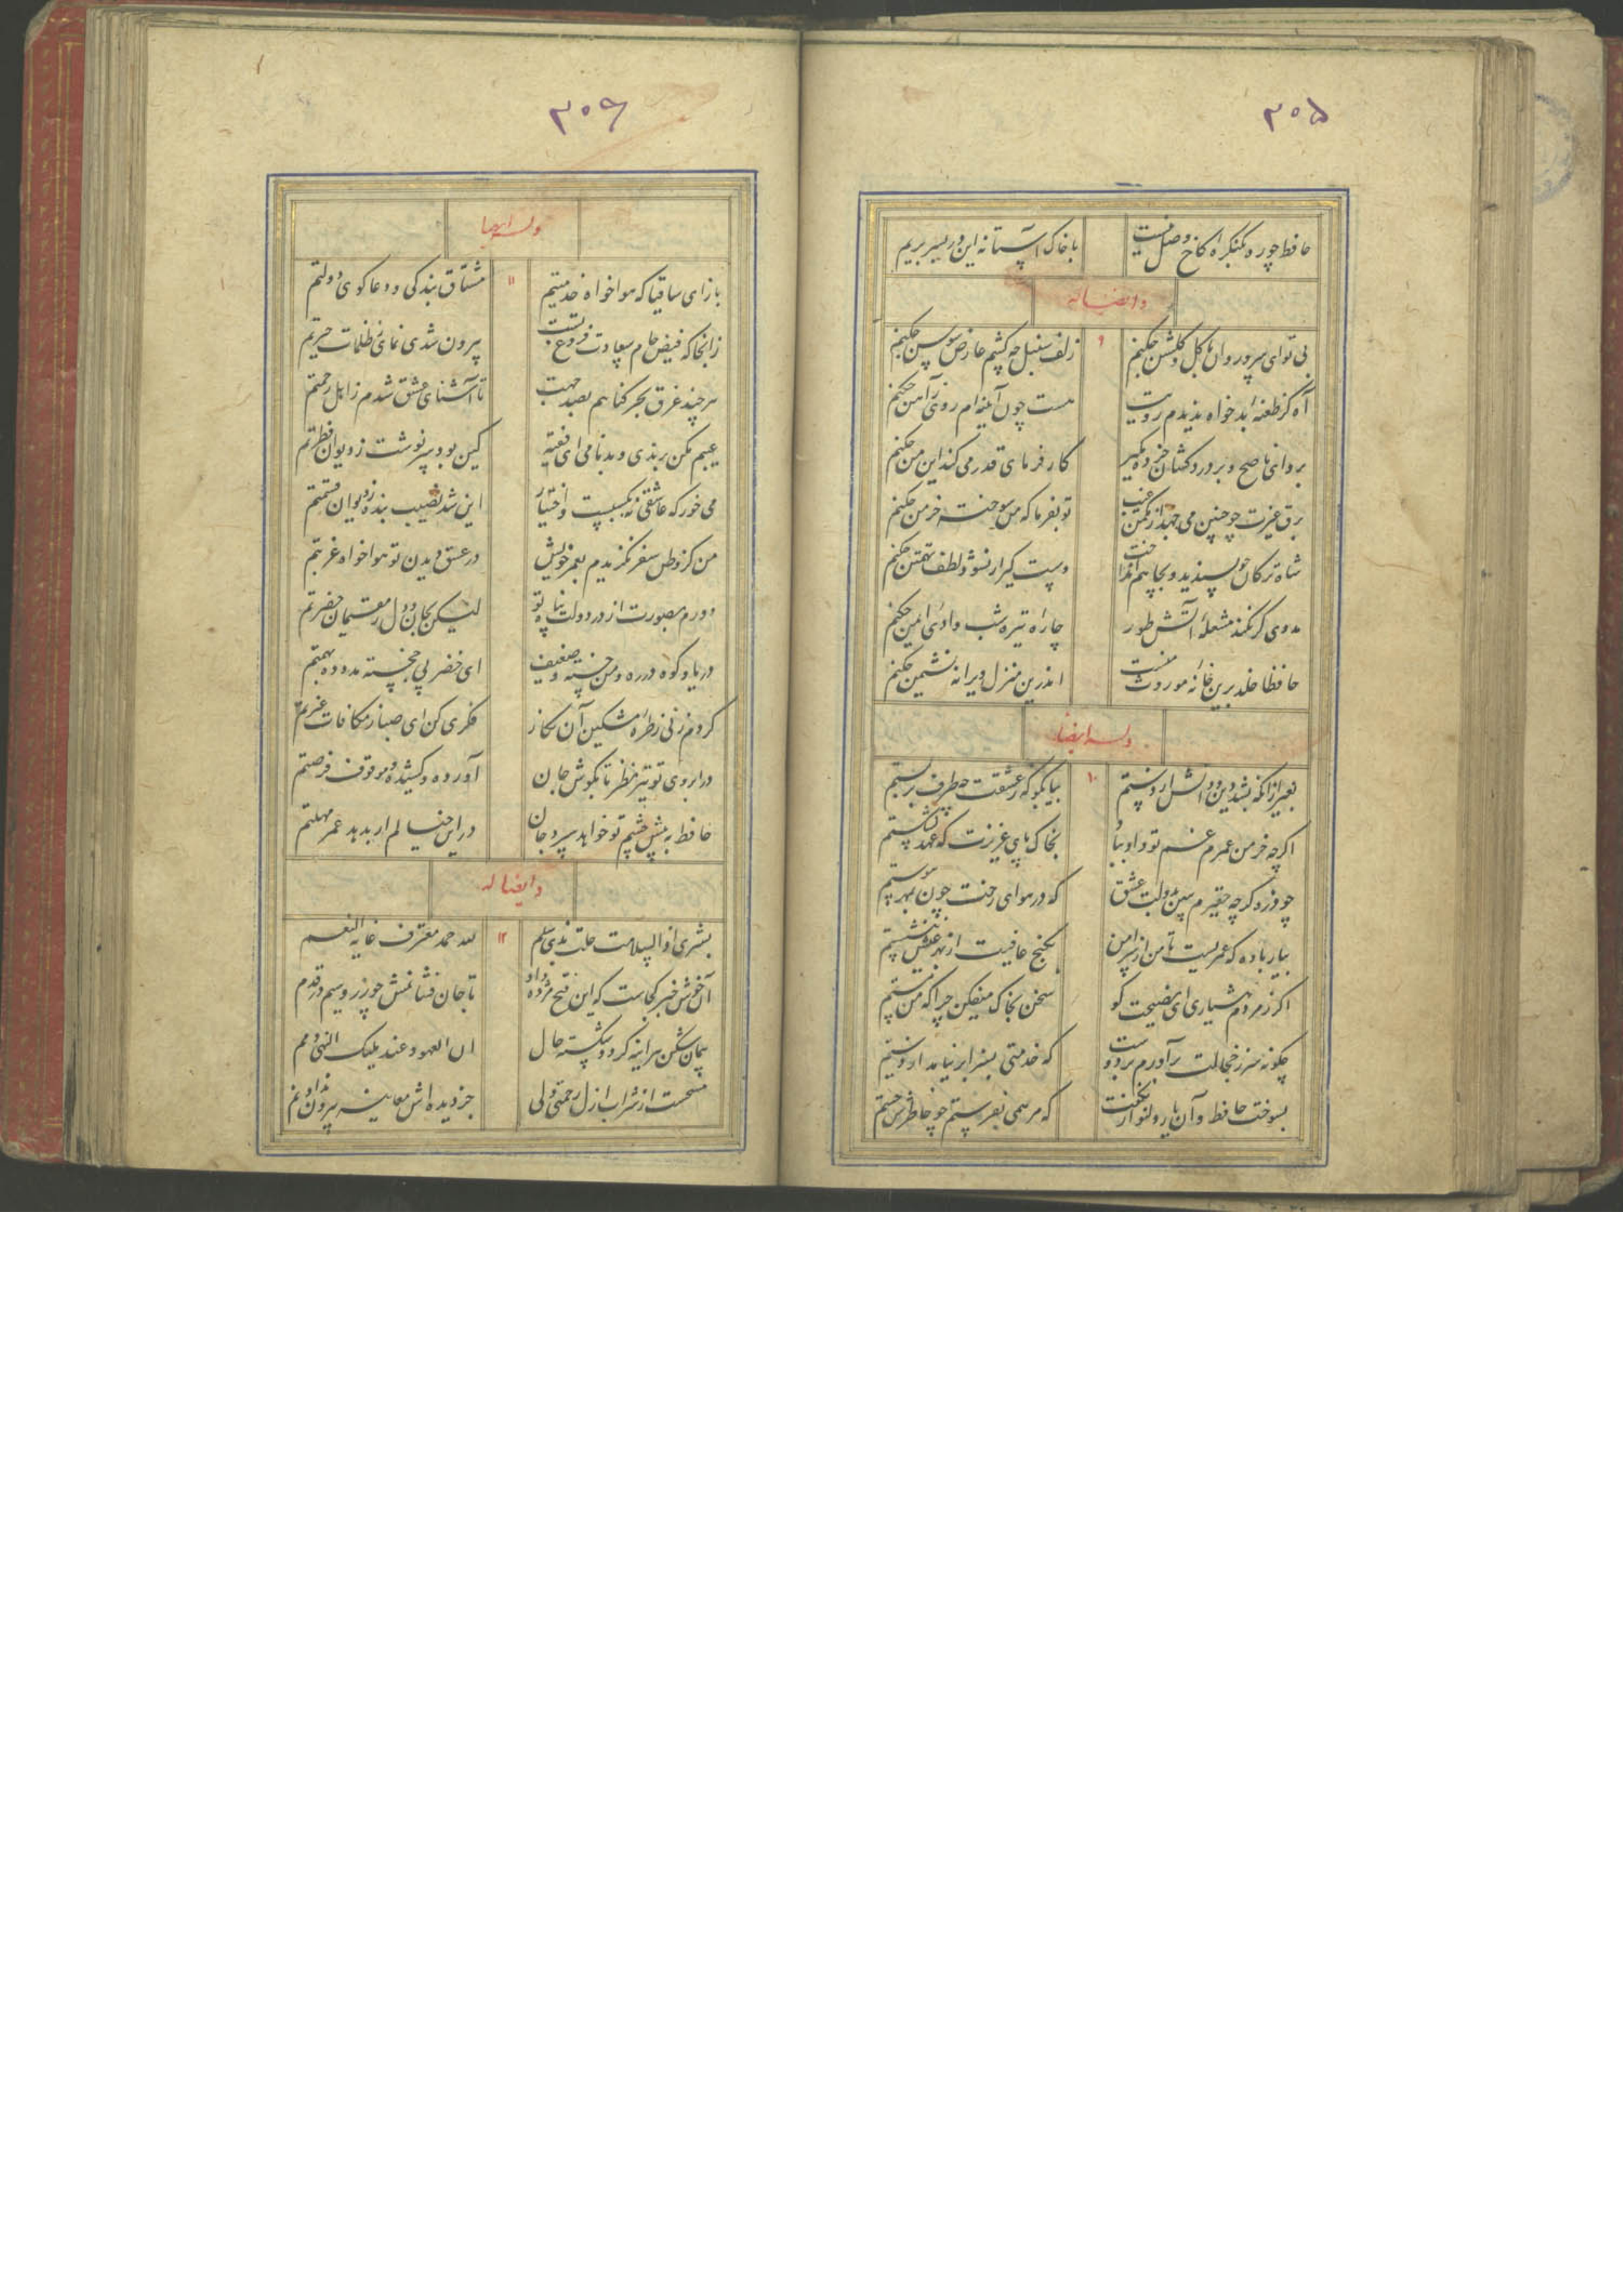 ۳۰۵
حافظ چو ره بکنگرهٔ کاخ وصل نیست با خاک آستانه این در بسر بریم
وایضاله
۹
بی تو ای سرو روان با گل و گلشن چکنم زلف سنبل چه کشم عارض سوسن چکنم
آه کز طعنهٔ بدخواه ندیدم رویت نیست چون آینه‌ام روی ز آهن چکنم
برو ای ناصح و بر دردکشان خرده مگیر کارفرمای قدر می کند این من چکنم
برق غیرت چو چنین می جهد از مکمن غیب تو بفرما که من سوخته خرمن چکنم
شاه ترکان چو پسندید و بچاهم انداخت دستگیر ار نشود لطف تهمتن چکنم
مددی گر نکند مشعلهٔ آتش طور چارهٔ تیره شب وادی ایمن چکنم
حافظا خلد برین خانهٔ موروث منست اندرین منزل ویرانه نشیمن چکنم
وله ایضا
۱۰
بغیر ازانکه بشد دین و دانش از دستم بیا بگو که ز عشقت چه طرف بربستم
اگرچه خرمن عمرم غم تو داد بباد بخاک پای عزیزت که عهد نشکستم
چو ذره گرچه حقیرم ببین بدولت عشق که در هوای رخت چون بمهر پیوستم
بیار باده که عمریست تا من از سر امن بکنج عافیت از بهر عیش ننشستم
اگر ز مردم هشیاری ای نصیحت گو سخن بخاک میفکن چرا که من مستم
چگونه سر ز خجالت برآورم بر دوست که خدمتی بسزا بر نیامد از دستم
بسوخت حافظ و آن یار دلنواز نگفت که مرهمی بفرستم چو خاطرش خستم
۳۰۶
وله ایضا
۱۱
بازای ساقیا که هواخواه خدمتیم مشتاق بندگی و دعاگوی دولتم
زانجا که فیض جام سعادت فروغ تست بیرون شدی نمای ز ظلمات حیرتم
هرچند غرق بحر گناهم بصد جهت تا آشنای عشق شدم ز اهل رحمتم
عیبم مکن برندی و بدنامی ای فقیه کین بود سرنوشت ز دیوان فطرتم
می خور که عاشقی نه بکسبست و اختیار این شد نصیب بنده ز دیوان قسمتم
من کز وطن سفر نگزیدم بعمر خویش در عشق دیدن تو هواخواه غربتم
دورم بصورت از در دولت پناه تو لیکن بجان و دل ز مقیمان حضرتم
دریا و کوه در ره و من خسته و ضعیف ای خضر پی خجسته مدد ده بهمتم
گر دم زنی ز طرهٔ مشکین آن نگار فکری کن ای صبا ز مکافات غیرتم
در ابروی تو تیر نظر تا بگوش جان آورده و کشیده و موقوف فرصتم
حافظ به پیش چشم تو خواهد سپرد جان در این خیالم ار بدهد عمر مهلتم
وایضاله
۱۲
بشری اذ السلامت حلت بذی سلم لله حمد معترف غایه النعم
آن خوش خبر کجاست که این فتح مژده داد تا جان فشانمش چو زر و سیم در قدم
پیمان شکن هراینه گردد شکسته حال ان العهود عند ملیک النهی ذمم
مستحت از شراب ازل رحمتی ولی جز دیده اش معاینه بیرون نداد نم